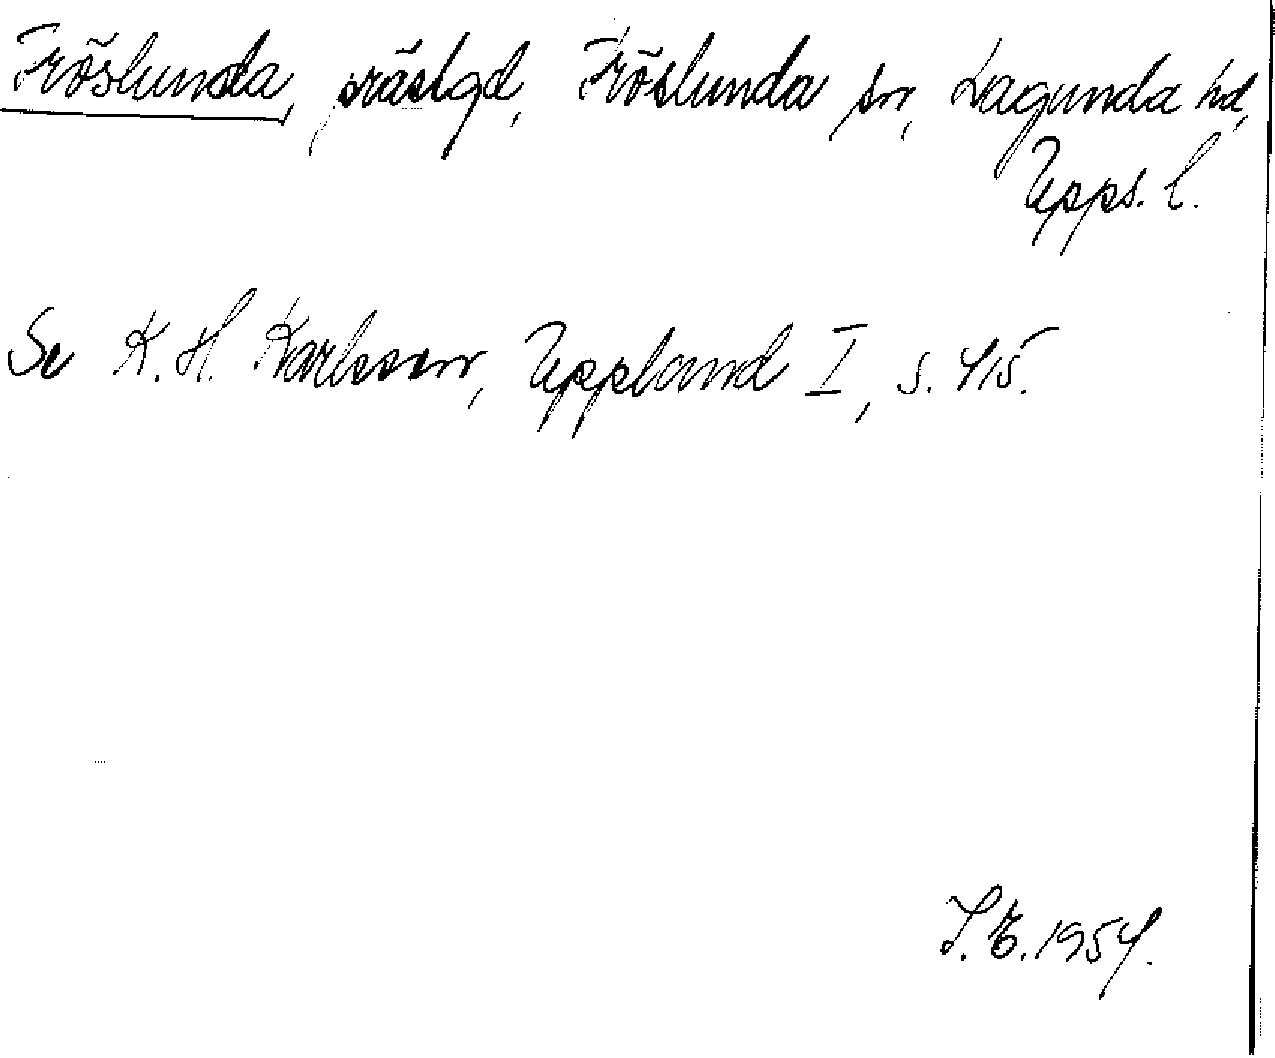 Fröslunda, prästgd, Fröslunda sn, Lagunda hd,
Upps. l.
Se K. H. Karlsson, Uppland I, s. 415.
S. E. 1954.